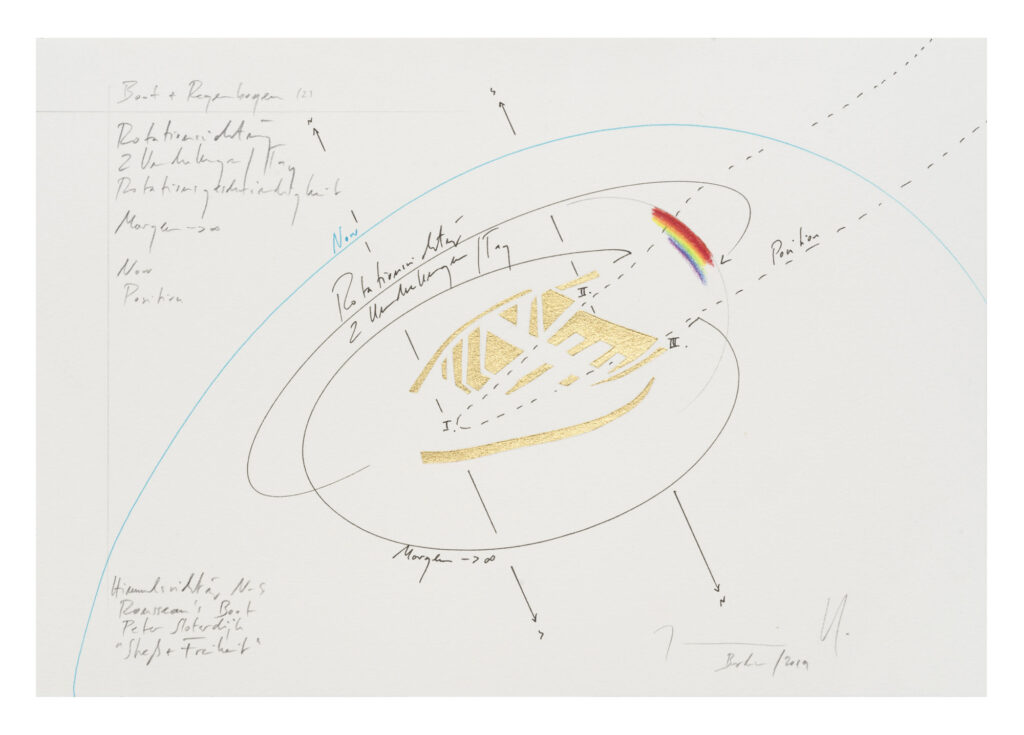 Boot + Regenbogen (2)
Rotationsrichtung
2 Umdrehungen / Tag
Rotationsgeschwindigkeit
Morgen -> ∞
Now
Position
N
S
Now
Rotationsrichtung
2 Umdrehungen / Tag
Position
I.
II.
III.
Morgen -> ∞
S
N
Himmelsrichtung N-S
Rousseau's Boot
Peter Sloterdijk
"Streß + Freiheit"
Berlin / 2019